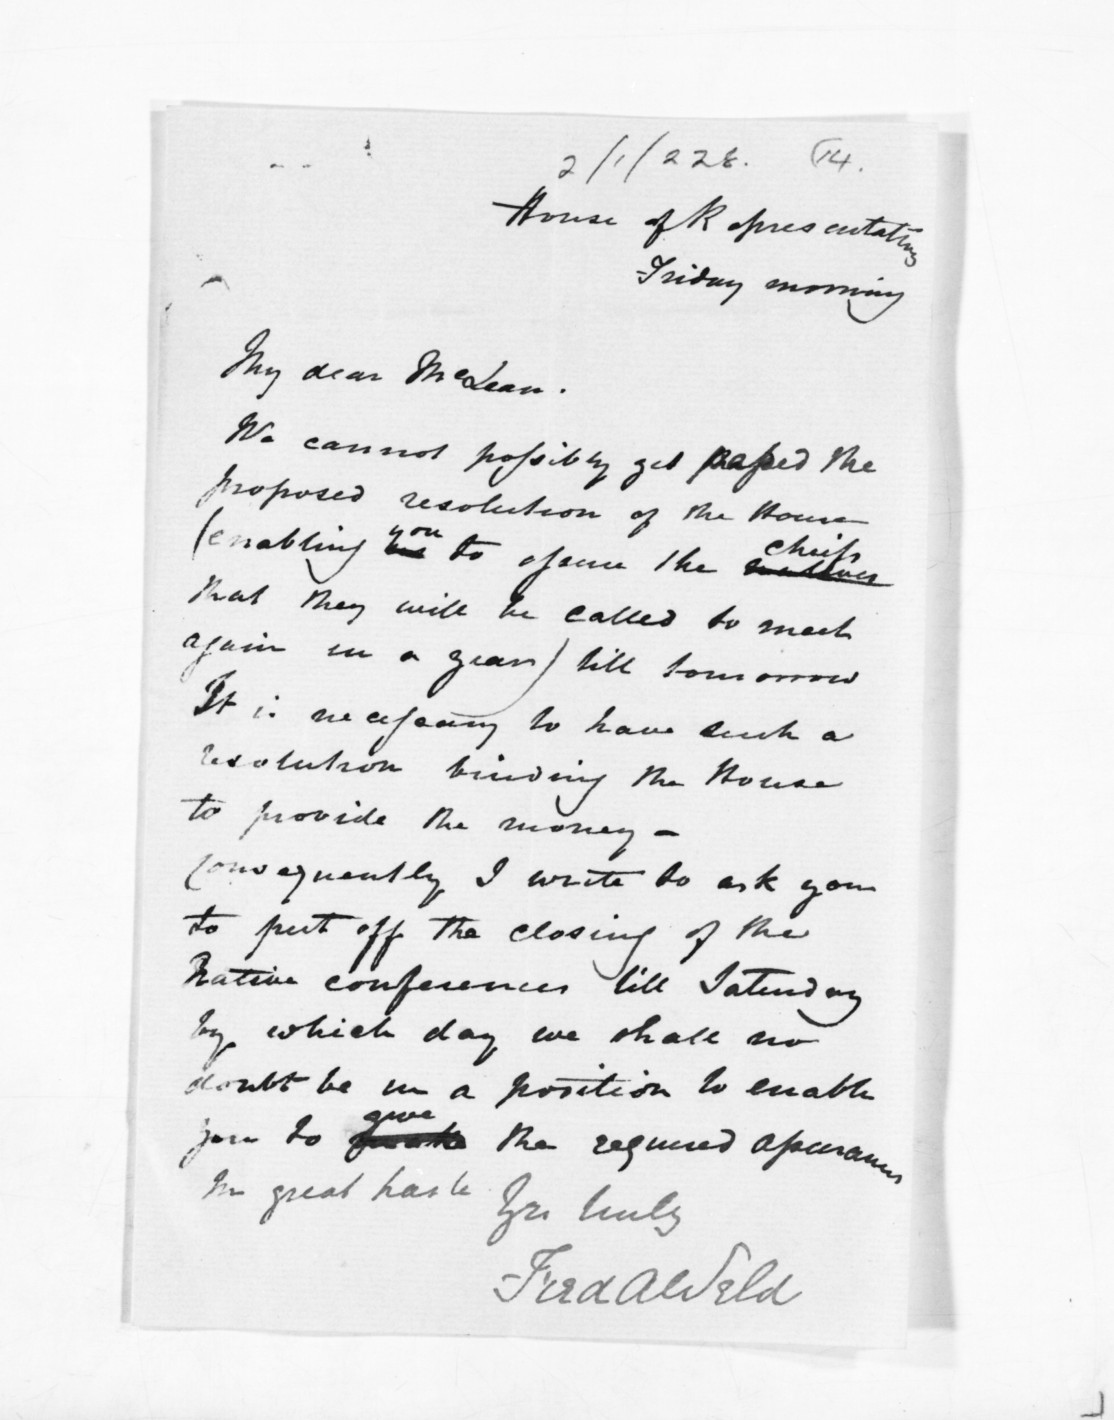 2/1/228. 14.
House of Representatives
Friday morning
My dear McLean.
We cannot possibly get passed the
proposed resolution of the House
(enabling you to assure the chiefs
that they will be called to meet
again in a year) till tomorrow
It is necessary to have such a
resolution binding the House
to provide the money -
Consequently I write to ask you
to put off the closing of the
Native conferences till Saturday
by which day we shall no
doubt be in a position to enable
you to give the required assurances
In great haste
Yrs truly
Fred A Weld